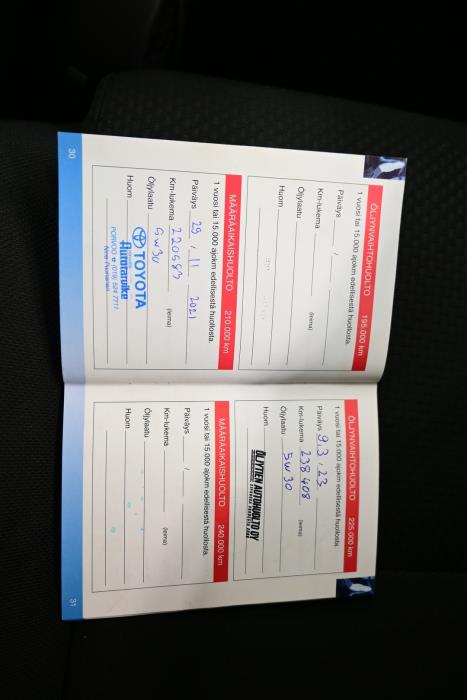 ÖLJYNVAIHTOHUOLTO 195.000 km
1 vuosi tai 15.000 ajokm edellisestä huollosta.
Päiväys /
Km-lukema
(leima)
Öljylaatu
Huom
MÄÄRÄAIKAISHUOLTO 210.000 km
1 vuosi tai 15.000 ajokm edellisestä huollosta.
Päiväys 29 / 11 2021
Km-lukema 220693
(leima)
Öljylaatu 5W30
Huom
TOYOTA
Autotarvike
PORVOO
30
ÖLJYNVAIHTOHUOLTO 225.000 km
1 vuosi tai 15.000 ajokm edellisestä huollosta.
Päiväys 9.3 / 23
Km-lukema 238408
(leima)
Öljylaatu 5W30
Huom
ÖLJYTIEN AUTOHUOLTO OY
MÄÄRÄAIKAISHUOLTO 240.000 km
1 vuosi tai 15.000 ajokm edellisestä huollosta.
Päiväys /
Km-lukema
(leima)
Öljylaatu
Huom
31